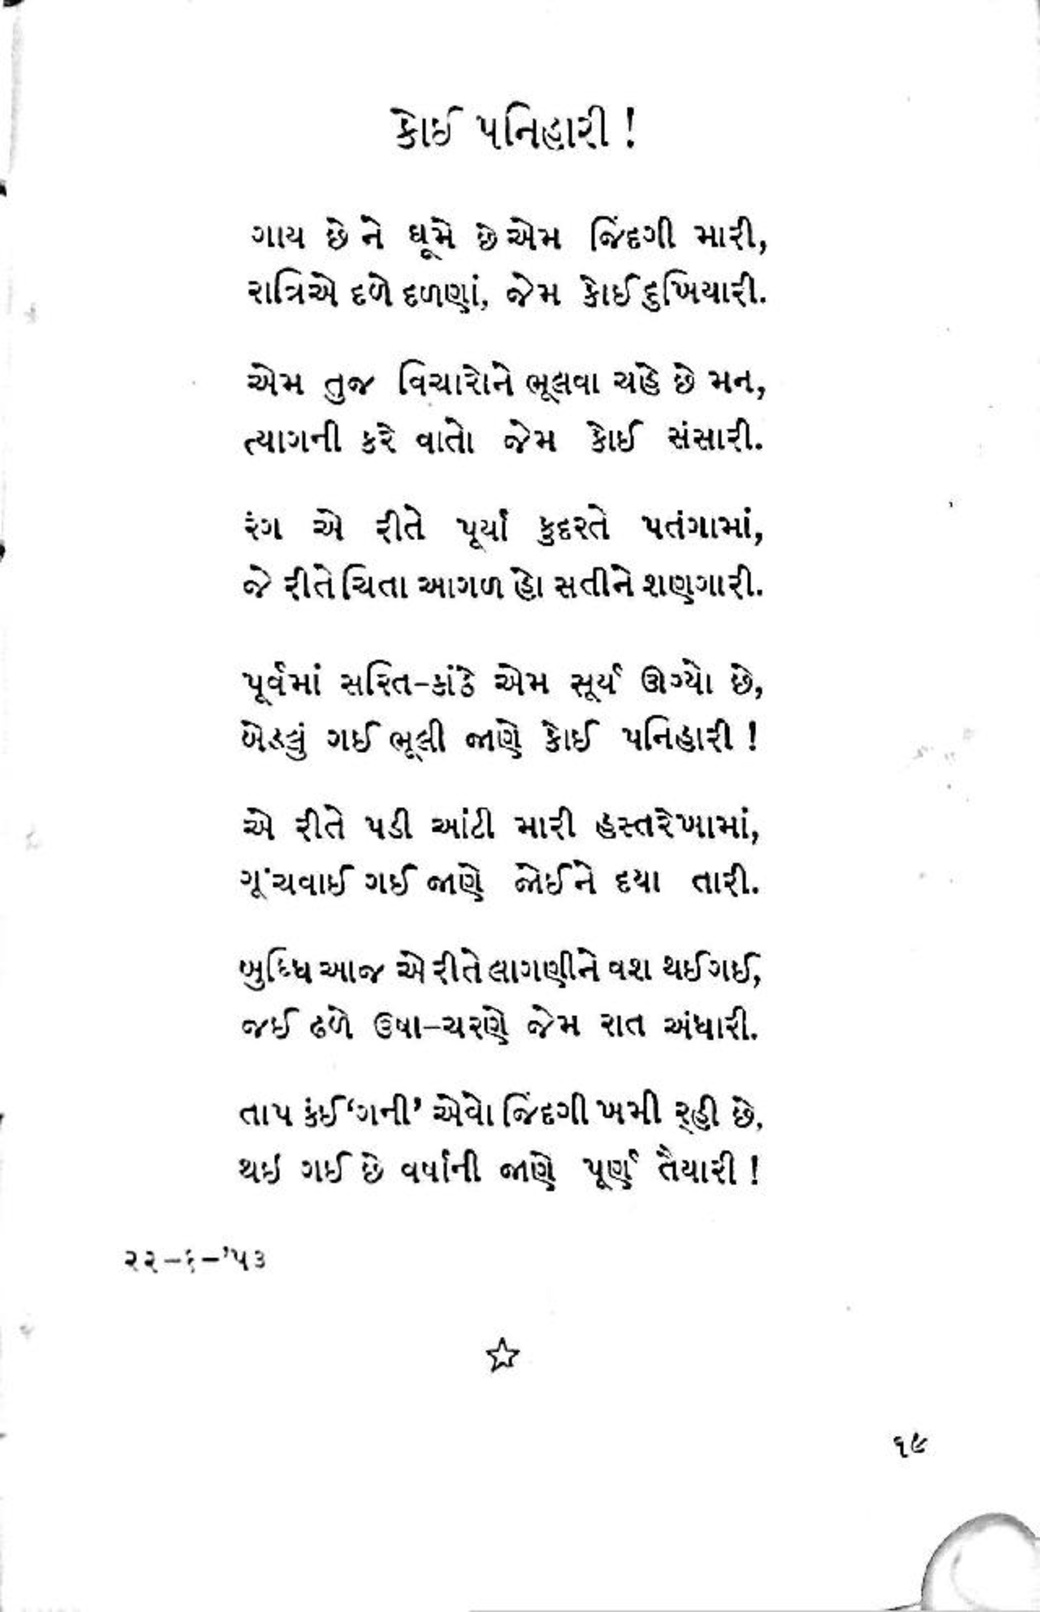 કોઈ પનિહારી !
ગાય છે ને ઘૂમે છે એમ જિંદગી મારી,
રાત્રિએ દળે દળણાં, જેમ કોઈ દુખિયારી.
એમ તુજ વિચારોને ભૂલવા ચહે છે મન,
ત્યાગની કરે વાતો જેમ કોઈ સંસારી.
રંગ એ રીતે પૂર્યાં કુદરતે પતંગામાં,
જે રીતે ચિતા આગળ હો સતીને શણગારી.
પૂર્વમાં સરિત-કાંઠે એમ સૂર્ય ઊગ્યો છે,
બેડલું ગઈ ભૂલી જાણે કોઈ પનિહારી !
એ રીતે પડી આંટી મારી હસ્તરેખામાં,
ગૂંચવાઈ ગઈ જાણે જોઈને દયા તારી.
બુદ્ધિ આજ એ રીતે લાગણીને વશ થઈ ગઈ,
જઈ ઢળે ઉષા-ચરણે જેમ રાત અંધારી.
તાપ કંઈ ‘ગની’ એવો જિંદગી ખમી રહી છે,
થઈ ગઈ છે વર્ષાની જાણે પૂર્ણ તૈયારી !
૨૨-૬-’૫૩
૧૯